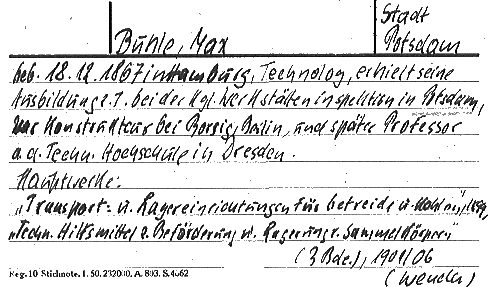 Stadt
Buhle, Max Potsdam
geb. 18.12.1867 in Hamburg, Technolog, erhielt seine
Ausbildung z.T. bei der Kgl. Werkstätteninspektion in Potsdam,
war Konstrukteur bei Borsig, Berlin, und später Professor
a.d. Techn. Hochschule in Dresden.
Hauptwerke:
"Transport- u. Lagereinrichtungen für Getreide u. Kohle", 1899,
"Techn. Hilfsmittel z. Beförderung u. Lagerung v. Sammelkörpern"
(3 Bde.), 1901/06
(Wendler)
Reg. 10 Stichnote. 1. 50. 232000. A. 803. S. 4662